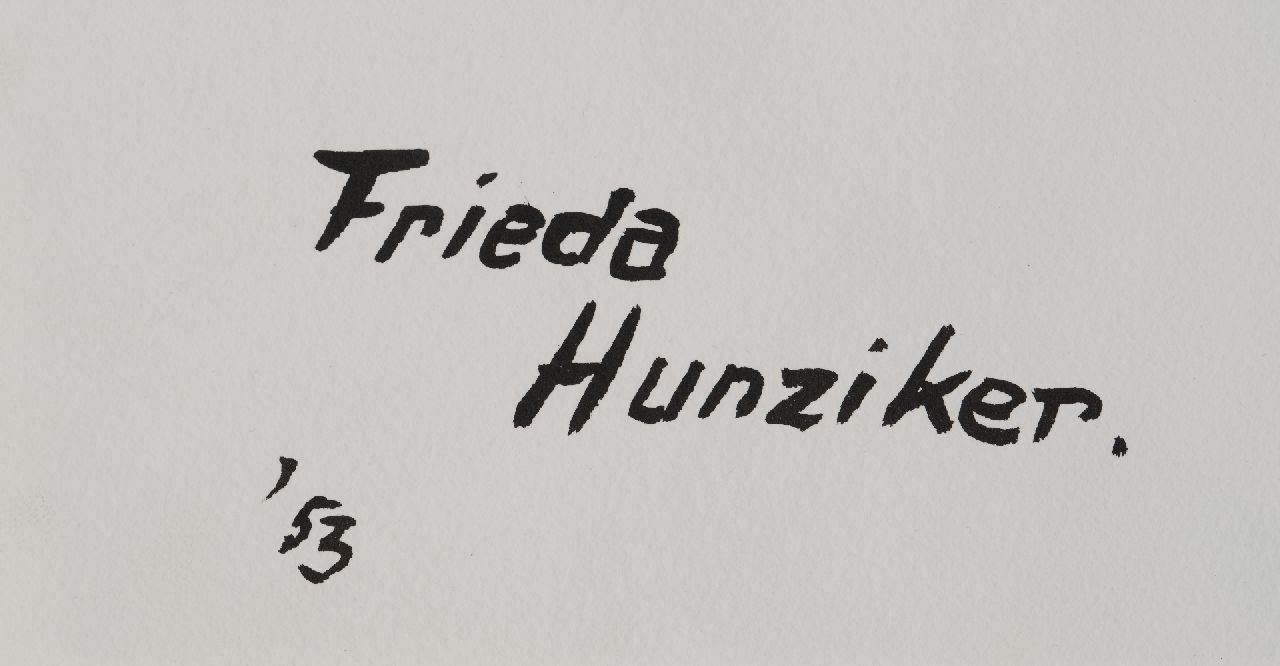 Frieda
Hunziker.
'53